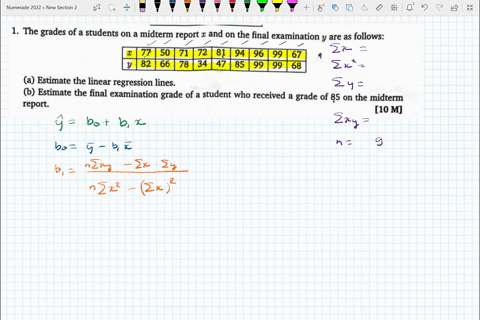 Numerade 2022 > New Section 2
1. The grades of a students on a midterm report x and on the final examination y are as follows:
x 77 50 71 72 81 94 96 99 67
y 82 66 78 34 47 85 99 99 68
(a) Estimate the linear regression lines.
(b) Estimate the final examination grade of a student who received a grade of 85 on the midterm
report.
[10 M]
Σx =
Σx² =
Σy =
Σxy =
n = 9
ŷ = b₀ + b₁ x
b₀ = ȳ - b₁ x̄
b₁ = nΣxy - Σx Σy
nΣx² - (Σx)²